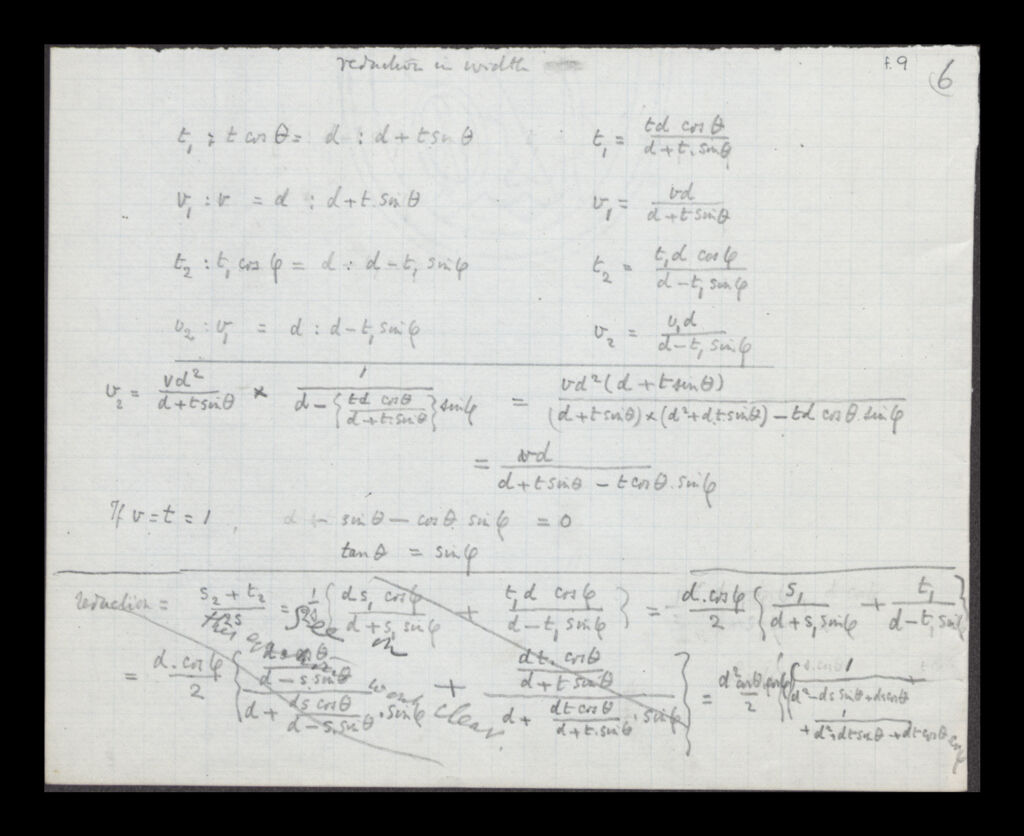 reduction in width
f.9
6
t₁ : t cos θ = d : d + t sin θ t₁ = td cos θ / d + t. sin θ
v₁ : v = d : d + t sin θ v₁ = vd / d + t sin θ
t₂ : t₁ cos φ = d : d − t₁ sin φ t₂ = t₁d cos φ / d − t₁ sin φ
v₂ : v₁ = d : d − t₁ sin φ v₂ = v₁d / d − t₁ sin φ
v₂ = vd² / d + t sin θ × 1 / d − {td cos θ / d + t. sin θ} sin φ = vd² (d + t sin θ) / (d + t sin θ) × (d² + d.t. sin θ) − td cos θ. sin φ
= vd / d + t sin θ − t cos θ. sin φ
If v = t = 1, sin θ − cos θ. sin φ = 0
tan θ = sin φ
reduction = s₂ + t₂ / 2s = 1/2s {ds₁ cos φ / d + s₁ sin φ + t₁d cos φ / d − t₁ sin φ} = d. cos φ / 2 {s₁ / d + s₁ sin φ + t₁ / d − t₁ sin φ}
= d. cos φ / 2 { / d − s. sin θ / d + ds cos θ / d − s. sin θ . sin φ + dt. cos θ / d + t sin θ / d + dt cos θ / d + t. sin θ . sin φ} = d² cos θ. cos φ / 2 {1 / d² − ds sin θ + ds cos θ
+ 1 / d² + dt sin θ + dt cos θ
this
see
on
work
clear.